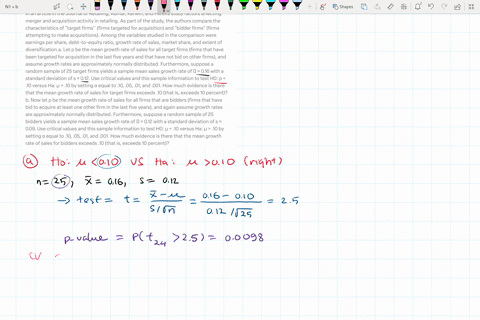 merger and acquisition activity in retailing. As part of the study, the authors compare the
characteristics of "target firms" (firms targeted for acquisition) and "bidder firms" (firms
attempting to make acquisitions). Among the variables studied in the comparison were
earnings per share, debt-to-equity ratio, growth rate of sales, market share, and extent of
diversification a. Let μ be the mean growth rate of sales for all target firms (firms that
have been targeted for acquisition in the last five years and that have not bid on other firms), and
assume growth rates are approximately normally distributed. Furthermore, suppose a
random sample of 25 target firms yields a sample mean sales growth rate of = 0.16 with a
standard deviation of s = 0.12. Use critical values and this sample information to test H0: μ =
.10 versus Ha: μ > .10 by setting α equal to .10, .05, .01, and .001. How much evidence is there
that the mean growth rate of sales for target firms exceeds .10 (that is, exceeds 10 percent)?
b. Now let μ be the mean growth rate of sales for all firms that are bidders (firms that have
bid to acquire at least one other firm in the last five years), and again assume growth
rates are approximately normally distributed. Furthermore, suppose a random sample of 25
bidders yields a sample mean sales growth rate of = 0.12 with a standard deviation of s =
0.09. Use critical values and this sample information to test H0: μ = .10 versus Ha: μ > .10 by
setting α equal to .10, .05, .01, and .001. How much evidence is there that the mean growth
rate of sales for bidders exceeds .10 (that is, exceeds 10 percent)?
a H0: μ < 0.10 VS Ha: μ > 0.10 (right)
n = 25, x̄ = 0.16, s = 0.12
→ test = t = x̄ - μ / s/√n = 0.16 - 0.10 / 0.12/√25 = 2.5
p value = P(t24 > 2.5) = 0.0098